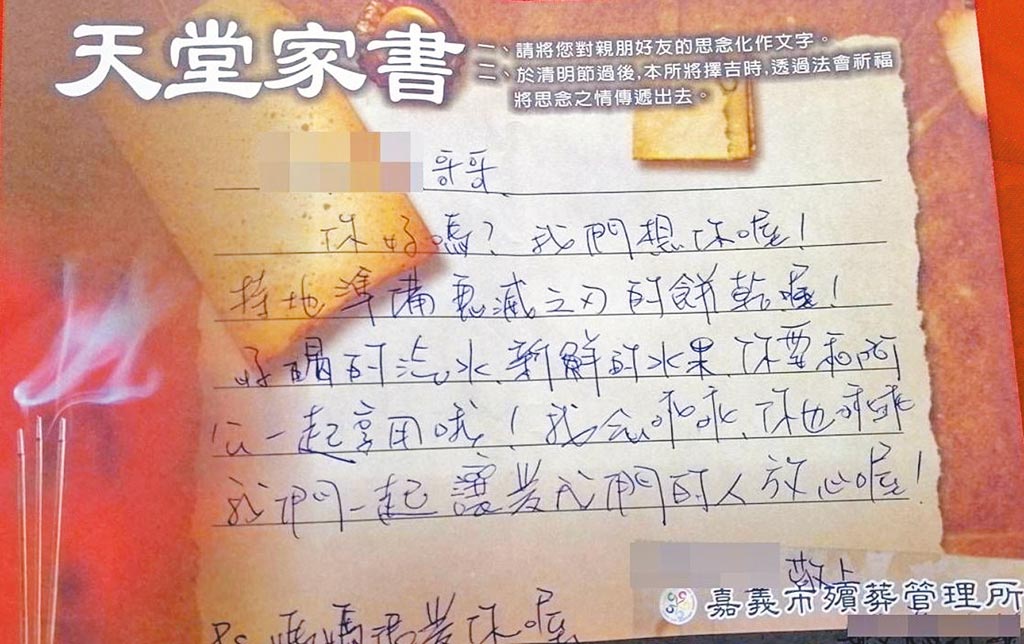 天堂家書
一、請將您對親朋好友的思念化作文字。
二、於清明節過後,本所將擇吉時,透過法會祈福
將思念之情傳遞出去。
哥哥
你好嗎?我們想你喔!
特地準備鬼滅之刃的餅乾喔!
好喝的汽水、新鮮的水果、你要和阿
公一起享用哦!我会乖乖、你也乖乖
我們一起讓愛我們的人放心喔!
敬上
嘉義市殯葬管理所
PS 媽媽很愛你喔